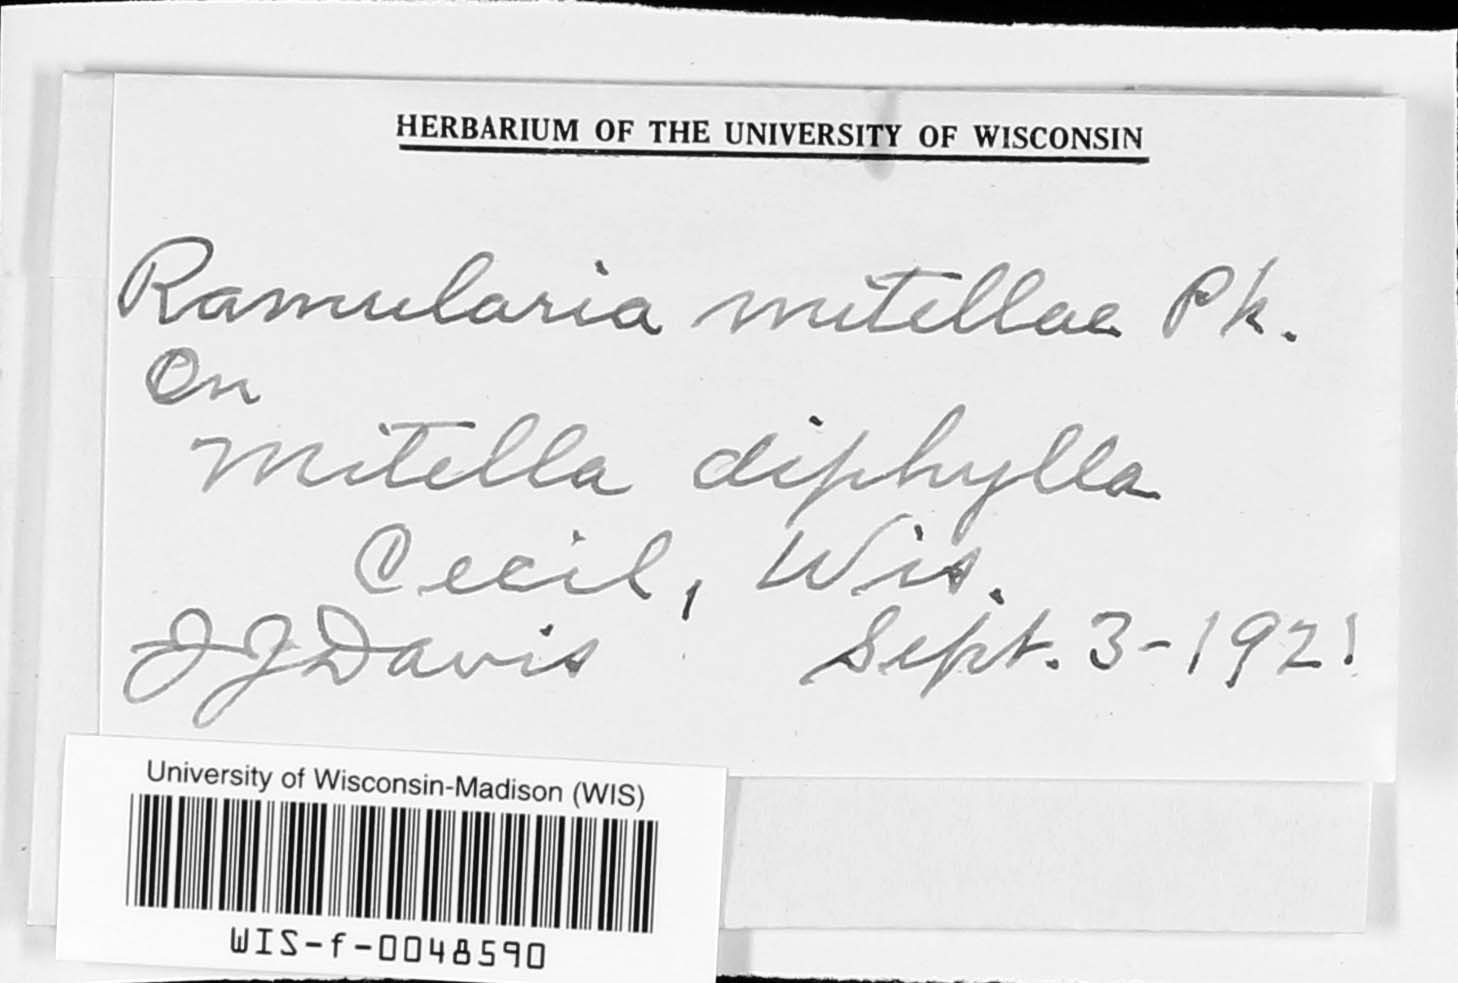 HERBARIUM OF THE UNIVERSITY OF WISCONSIN
Ramularia mitellae Pk.
On
Mitella diphylla
Cecil, Wis.
JJDavis Sept. 3-1921
University of Wisconsin-Madison (WIS)
WIS-f-0048590